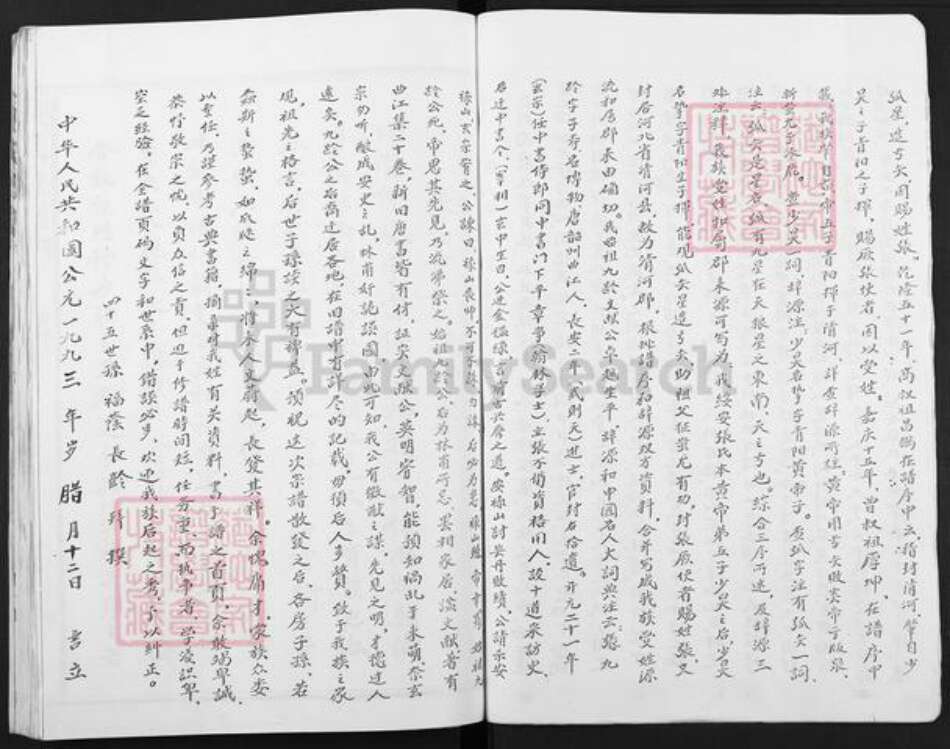 弧星，造弓矢，因赐姓张。乾隆五十一年，高叔祖昌鹏在谱序中云，稽封清河，肇自少
昊之子青阳之子挥，赐厥张使者，因以受姓。嘉庆十五年，曾叔祖厚坤，在谱序中
载，我族 五子青阳挥于清河，详查辞源所注，黄帝用弓矢败蚩尤于阪泉，
新 少昊一词，辞源注，少昊名挚字青阳黄帝子。虞弧字注有弧矢一词
注云，弧矢是星名，弧有九星在天狼星之东南，天之弓也。综合三序所述，及辞源三
姓张氏本黄帝第五子少昊之后，少昊
名挚字青阳生子挥，能观弧矢星造弓矢助祖父征蚩尤有功，封张厥使者赐姓张，又
封居河北省清河县，故为清河郡，根据谱序和辞源双方资料，合并写成我族受姓源
流和居郡来由确切。我始祖九龄文献公卓越生平，辞源和中国名人大词典注云：张九
龄字子寿名博物，唐韶州曲江人，长安二年（武则天）进士，官封右拾遗。开元二十一年
（玄宗）任中书侍郎同中书门下平章事（翰林学士），主张不循资格用人，设十道采访史，
居过中书令，（宰相）玄宗生日，公进金鉴录，言前古兴废之道。安禄山讨契丹败绩，公请示安
禄山 玄宗宥之，公谏曰，禄山
於公死，帝思其先见，乃流涕祭之。始祖九龄公，后为林甫所忌，罢相家居，溢文献，著有
曲江集二十卷，新旧唐书皆有传，证实文献公，英明睿智，能预知祸乱于未萌，奈玄
宗勿听，酿成安史之乱，林甫奸诡误国，由此可知，我公有徽猷之谋，先见之明，才德过人
远矣。九龄公之后裔迁居各地，在旧谱中有详尽的记载，毋须后人多赞。致于我族之家
规，祖先之格言，后世子孙读之大有裨益。预祝这次宗谱散发之后，各房子孙，若
螽斯之蛰蛰，如瓜瓞之绵绵，将来人文蔚起，长发其祥。余愧庸才，蒙族众委
以重任，乃谨参考古典书籍，摘录对我姓有关资料，书于谱之首页，余敢竭卑诚，
恭存敬宗之忱，以负众信之责，但迫于修谱时间短，任务重，而执事者，学浅识卑，
空之经验，在全谱页码文字和世系中，错误必多，欢迎我族后起之秀，予以纠正。
四十五世孙 福荫 长龄 撰
中华人民共和国公元一九九三年岁腊月十二日 立
FamilySearch